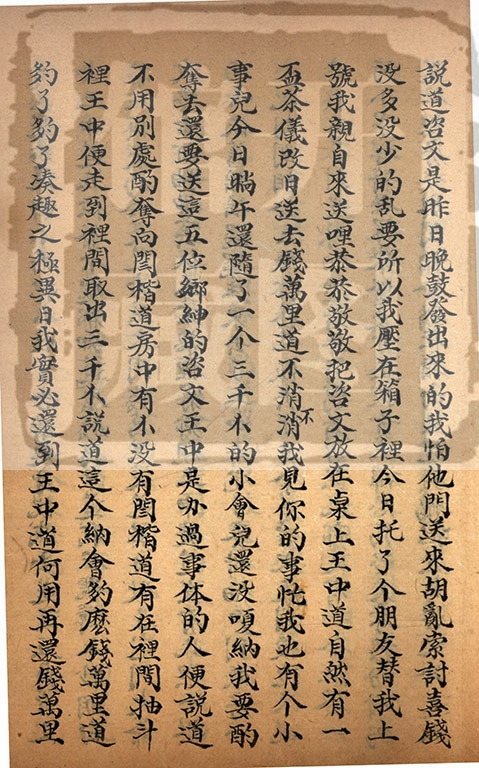 說道咨文是昨日晚鼓發出來的我怕他門送來胡亂索討喜錢
没多没少的乱要所以我壓在箱子裡今日托了个朋友替我上
號我親自來送哩恭恭敬敬把咨文放在桌上王中道自然有一
盃茶儀改日送去錢萬里道不消不消我見你的事忙我也有个小
事兒今日晌午還隨了一个三千不的小會兒還没嗄納我要酌
奪去還要送這五位鄉紳的咨文王中是办過事体的人便說道
不用別處酌奪向閻楷道房中有不没有閻楷道有在裡間抽斗
裡王中便走到裡間取出三千不說道這个納會彀麽錢萬里道
彀了彀了凑趣之極異日我實必還到王中道何用再還錢萬里